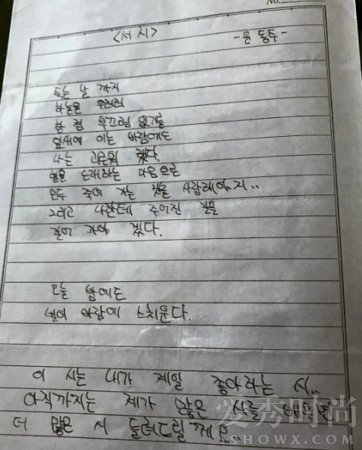 No.
<서시>
- 윤 동주
죽는 날 까지
하늘을 우러러
한 점 부끄럼 없기를
잎새에 이는 바람에도
나는 괴로워 했다.
별을 노래하는 마음으로
모두 죽어 가는 것을 사랑해야지..
그리고 나한테 주어진 길을
걸어 가야 겠다.
오늘 밤에도
별이 바람에 스치운다.
이 시는 내가 제일 좋아하는 시.
아직까지는 제가 많은 시를
더 많은 시 들려드릴께요
发秀时尚
SHOWX.COM